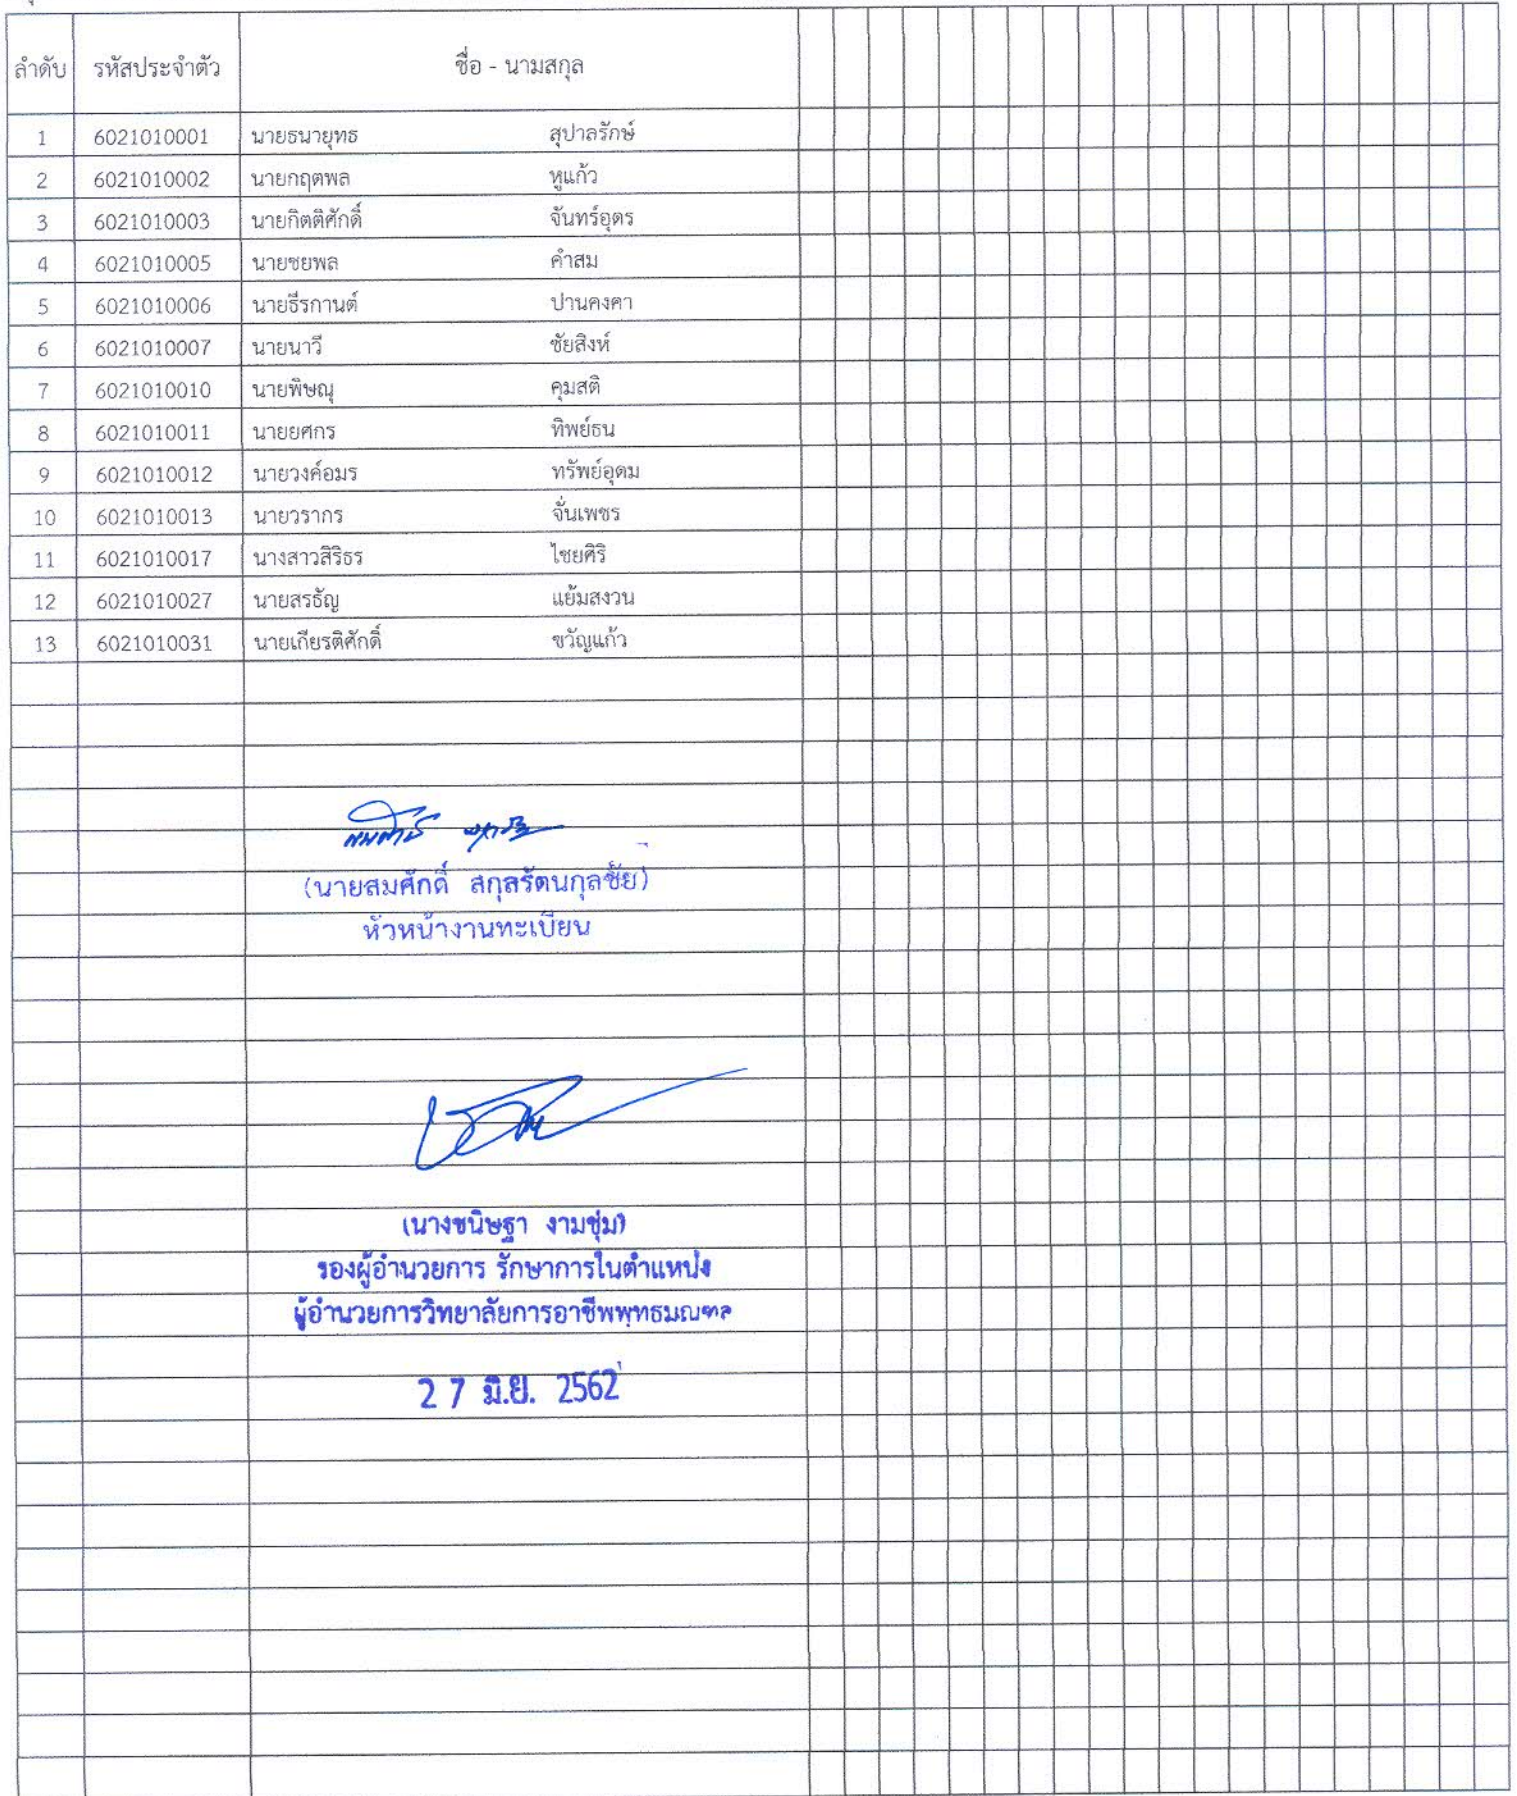 ลำดับ รหัสประจำตัว ชื่อ - นามสกุล
1 6021010001 นายธนายุทธ สุปาลรักษ์
2 6021010002 นายกฤตพล หูแก้ว
3 6021010003 นายกิตติศักดิ์ จันทร์อุดร
4 6021010005 นายชยพล คำสม
5 6021010006 นายธีรกานต์ ปานคงคา
6 6021010007 นายนาวี ชัยสิงห์
7 6021010010 นายพิษณุ คุมสติ
8 6021010011 นายยศกร ทิพย์ธน
9 6021010012 นายวงค์อมร ทรัพย์อุดม
10 6021010013 นายวรากร จั่นเพชร
11 6021010017 นางสาวสิริธร ไชยศิริ
12 6021010027 นายสรธัญ แย้มสงวน
13 6021010031 นายเกียรติศักดิ์ ขวัญแก้ว
(นายสมศักดิ์ สกุลรัตนกุลชัย)
หัวหน้างานทะเบียน
(นางชนิษฐา งามชุ่ม)
รองผู้อำนวยการ รักษาการในตำแหน่ง
ผู้อำนวยการวิทยาลัยการอาชีพพุทธมณฑล
27 มิ.ย. 2562